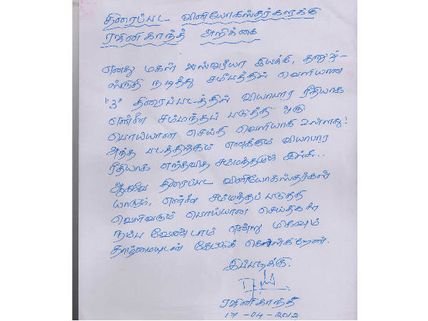 திரைப்பட வினியோகஸ்தர்களுக்கு
ரஜினிகாந்த் அறிக்கை
எனது மகள் ஐஸ்வர்யா இயக்கி, தனுஷ்-
ஸ்ருதி நடித்து சமீபத்தில் வெளியான
"3" திரைப்படத்தில் வியாபார ரீதியாக
என்னை சம்மந்தப் படுத்தி ஒரு
பொய்யான செய்தி வெளியாகி உள்ளது!
அந்த படத்திற்கும் எனக்கும் வியாபார
ரீதியாக எந்தவித சம்மந்தமும் இல்லை...
ஆகவே திரைப்பட வினியோகஸ்தர்கள்
யாரும், என்னை சம்மந்தப் படுத்தி
வெளிவரும் பொய்யான செய்திகளை
நம்ப வேண்டாம் என்று மிகவும்
தாழ்மையுடன் கேட்டுக் கொள்கிறேன்.
இப்படிக்கு.
ரஜினிகாந்த்
17-04-2012